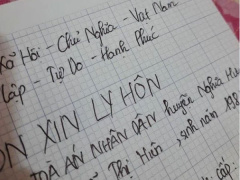 Xã Hội - Chủ Nghĩa - Việt Nam
Lập - Tự Do - Hạnh Phúc
ƠN XIN LY HÔN
TOÀ ÁN NHÂN DÂN huyện Nghĩa
Thị Hiền, sinh năm 198
cấp: